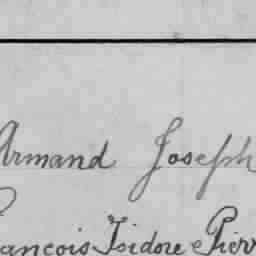 Armand Joseph
François Isidore Pierr